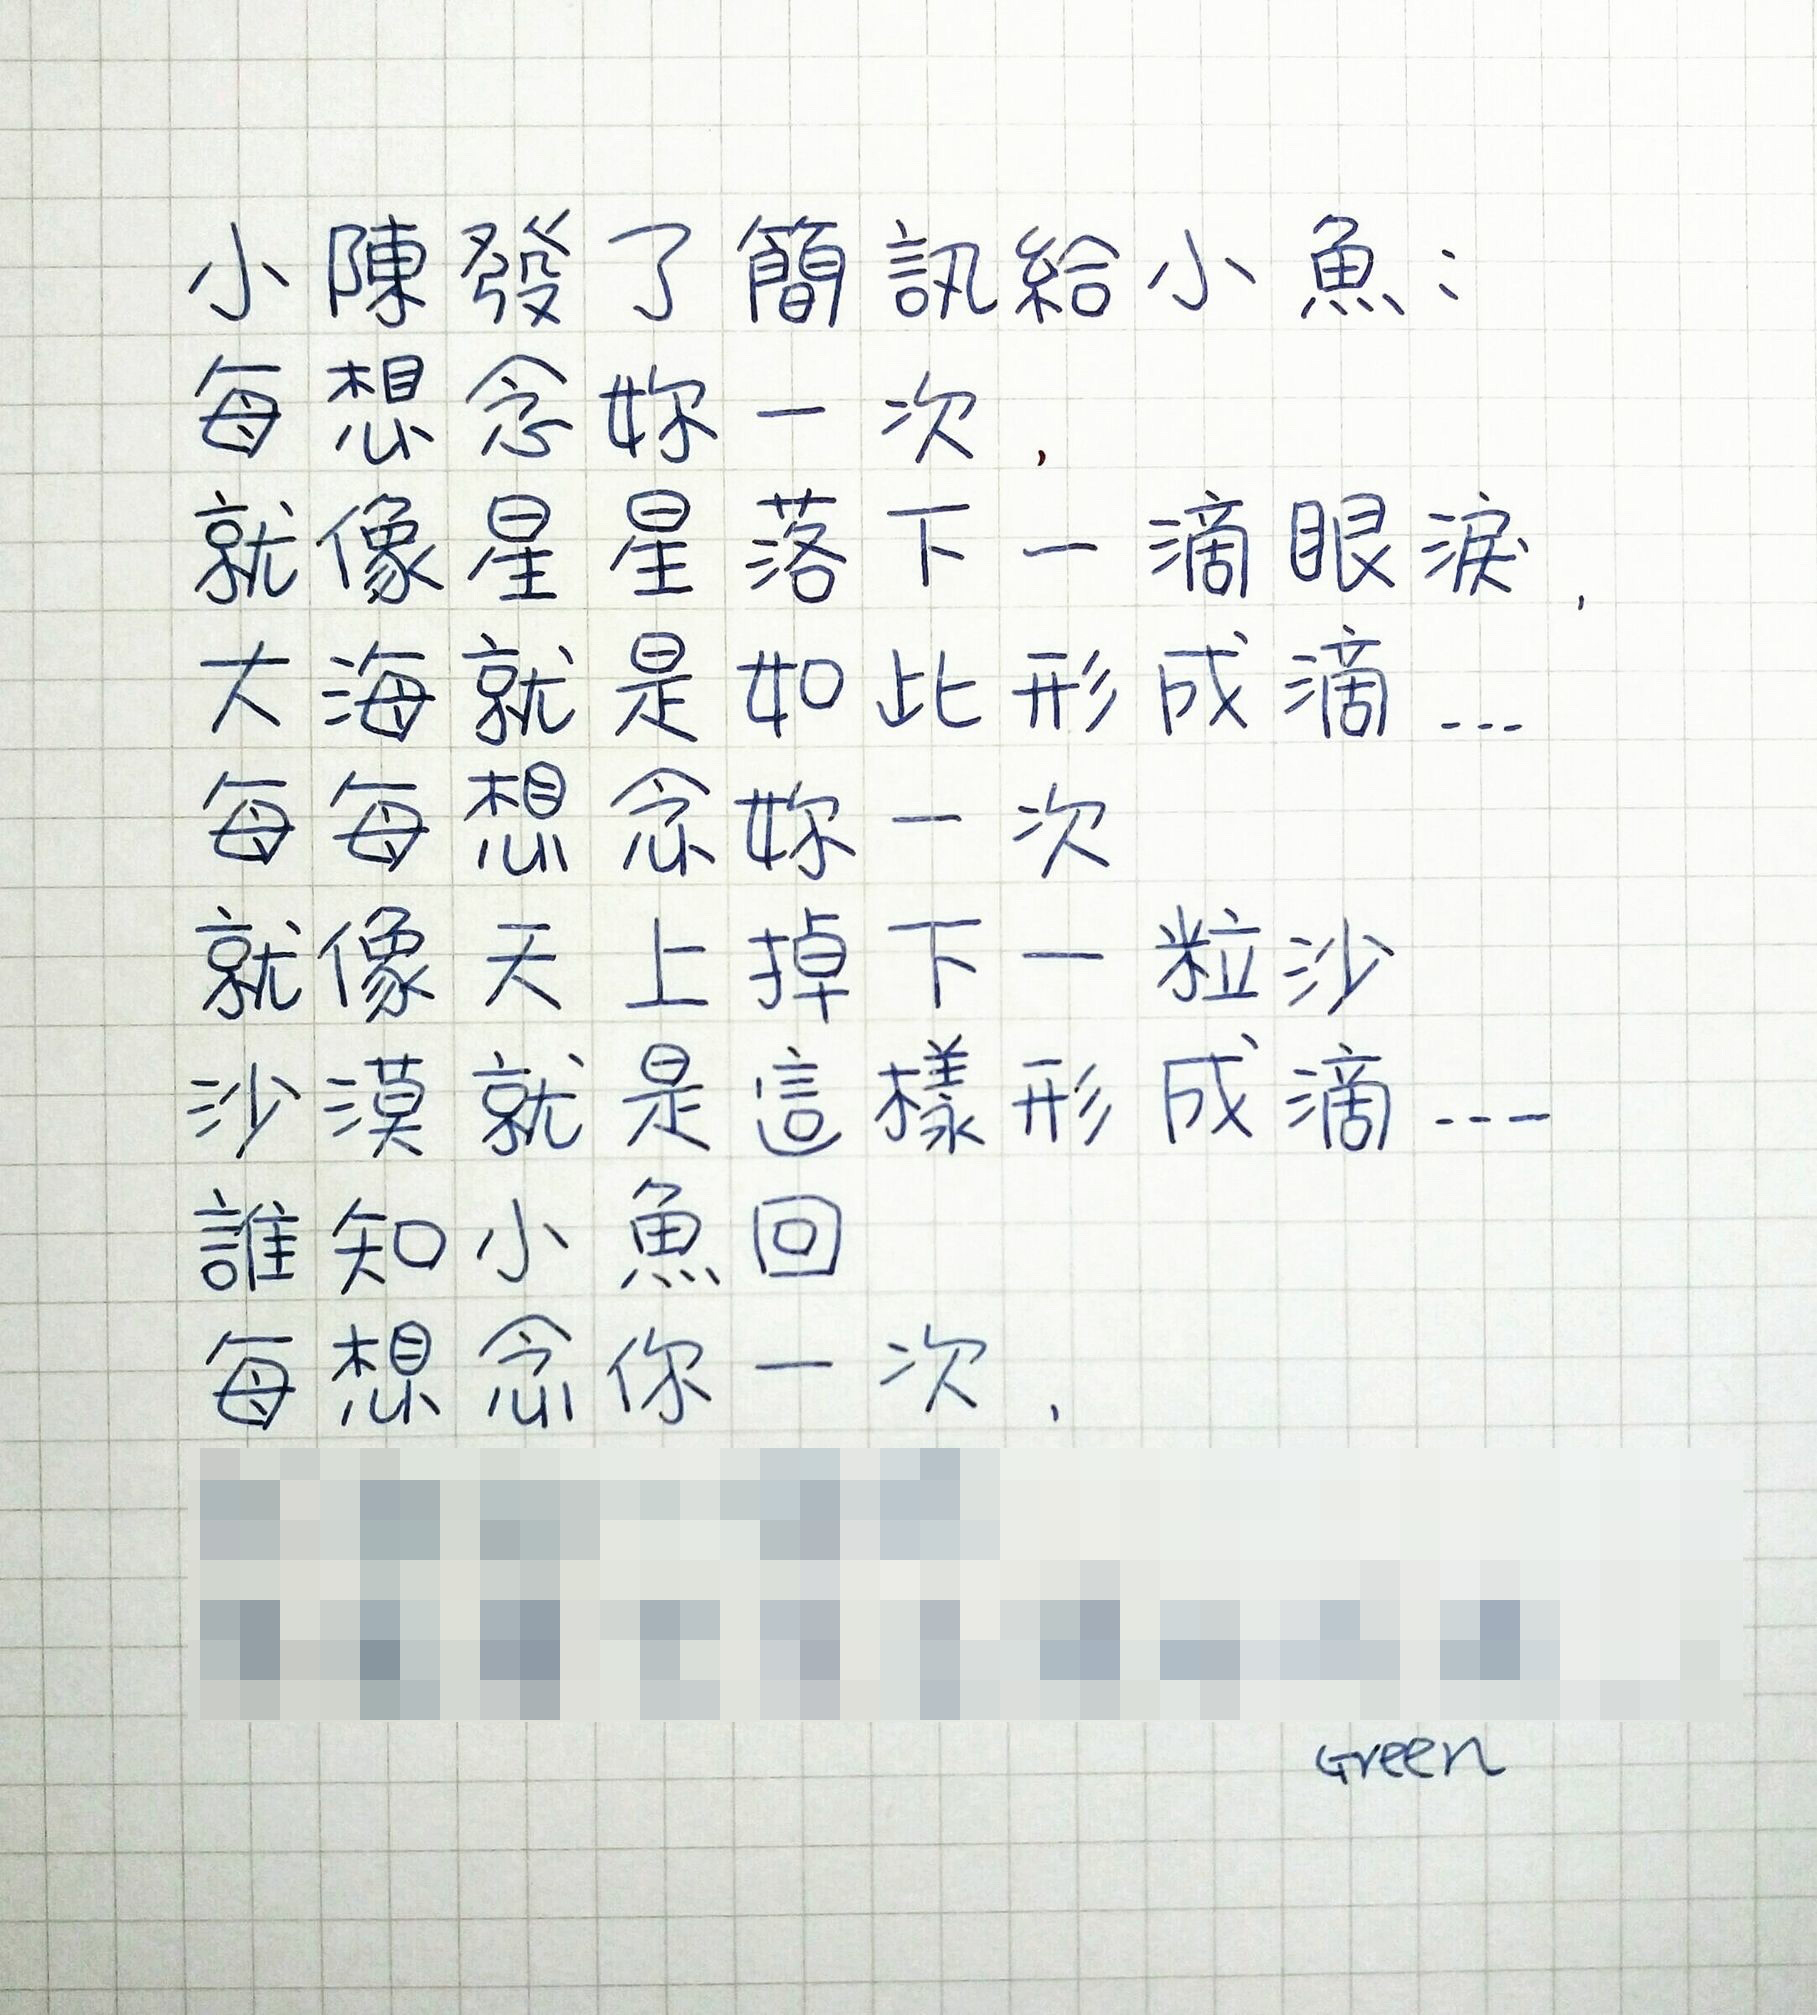 小陳發了簡訊給小魚：
每想念妳一次，
就像星星落下一滴眼淚，
大海就是如此形成滴...
每每想念妳一次
就像天上掉下一粒沙
沙漠就是這樣形成滴---
誰知小魚回
每想念你一次，
Green